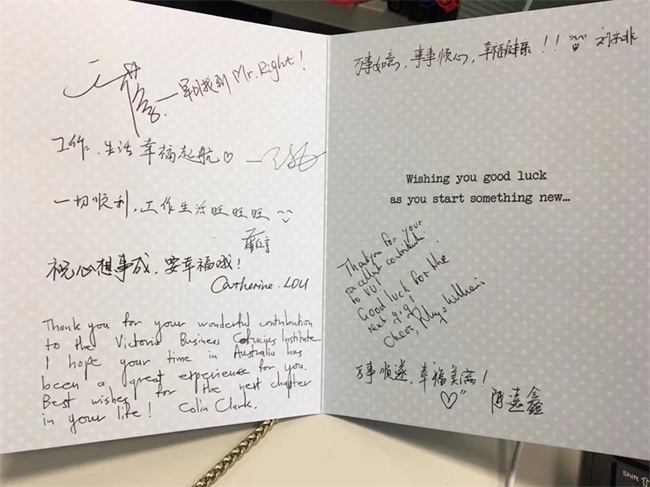 早日找到 Mr. Right!
工作、生活幸福起航♡
一切顺利,工作生活旺旺旺
祝心想事成,要幸福哦!
Catherine. LOU
Thank you for your wonderful contribution
to the Victoria Business Confucius Institute.
I hope your time in Australia has
been a great experience for you.
Best wishes for the next chapter
in your life! Colin Clark.
万事如意,事事顺心,幸福健康!!
Wishing you good luck
as you start something new...
Thank you for your
excellent contribution
to VU!
Good luck for the
next gig!
Cheers,
万事顺遂,幸福美满!
♡
Shift